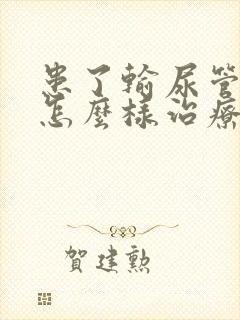 患了輸尿管
怎麼樣治療
賀建勲